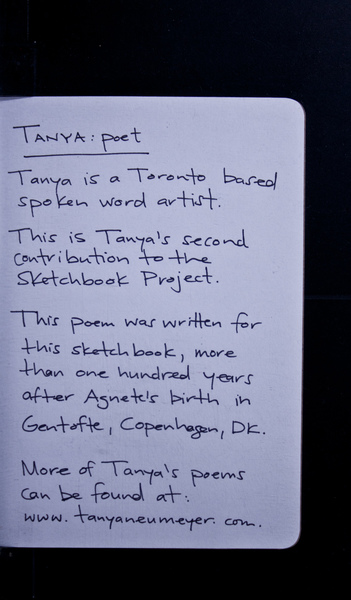 TANYA: poet
Tanya is a Toronto based
spoken word artist.
This is Tanya's second
contribution to the
Sketchbook Project.
This poem was written for
this sketchbook, more
than one hundred years
after Agnete's birth in
Gentofte, Copenhagen, DK.
More of Tanya's poems
can be found at:
www.tanyaneumeyer.com.